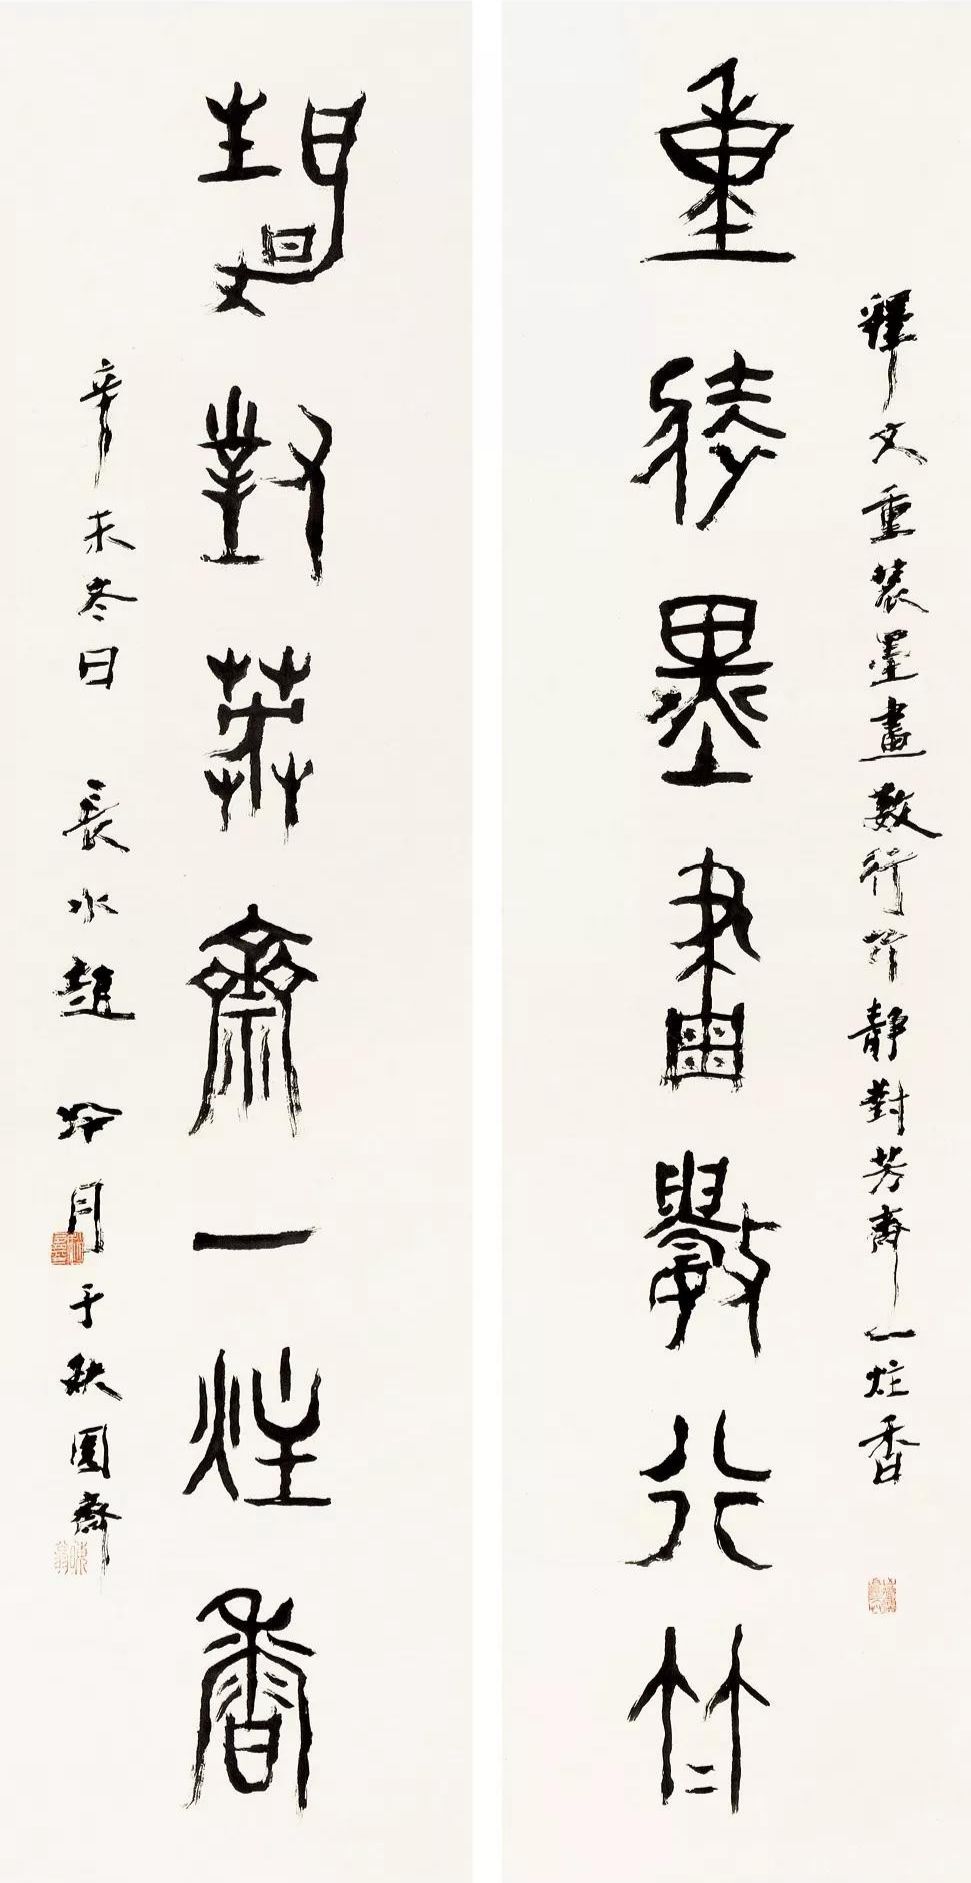 釋文重裝墨畫數行竹靜對芳齋一炷香
重裝墨畫數行竹
靜對芳齋一炷香
辛未冬日長水趙冷月于缺圓齋